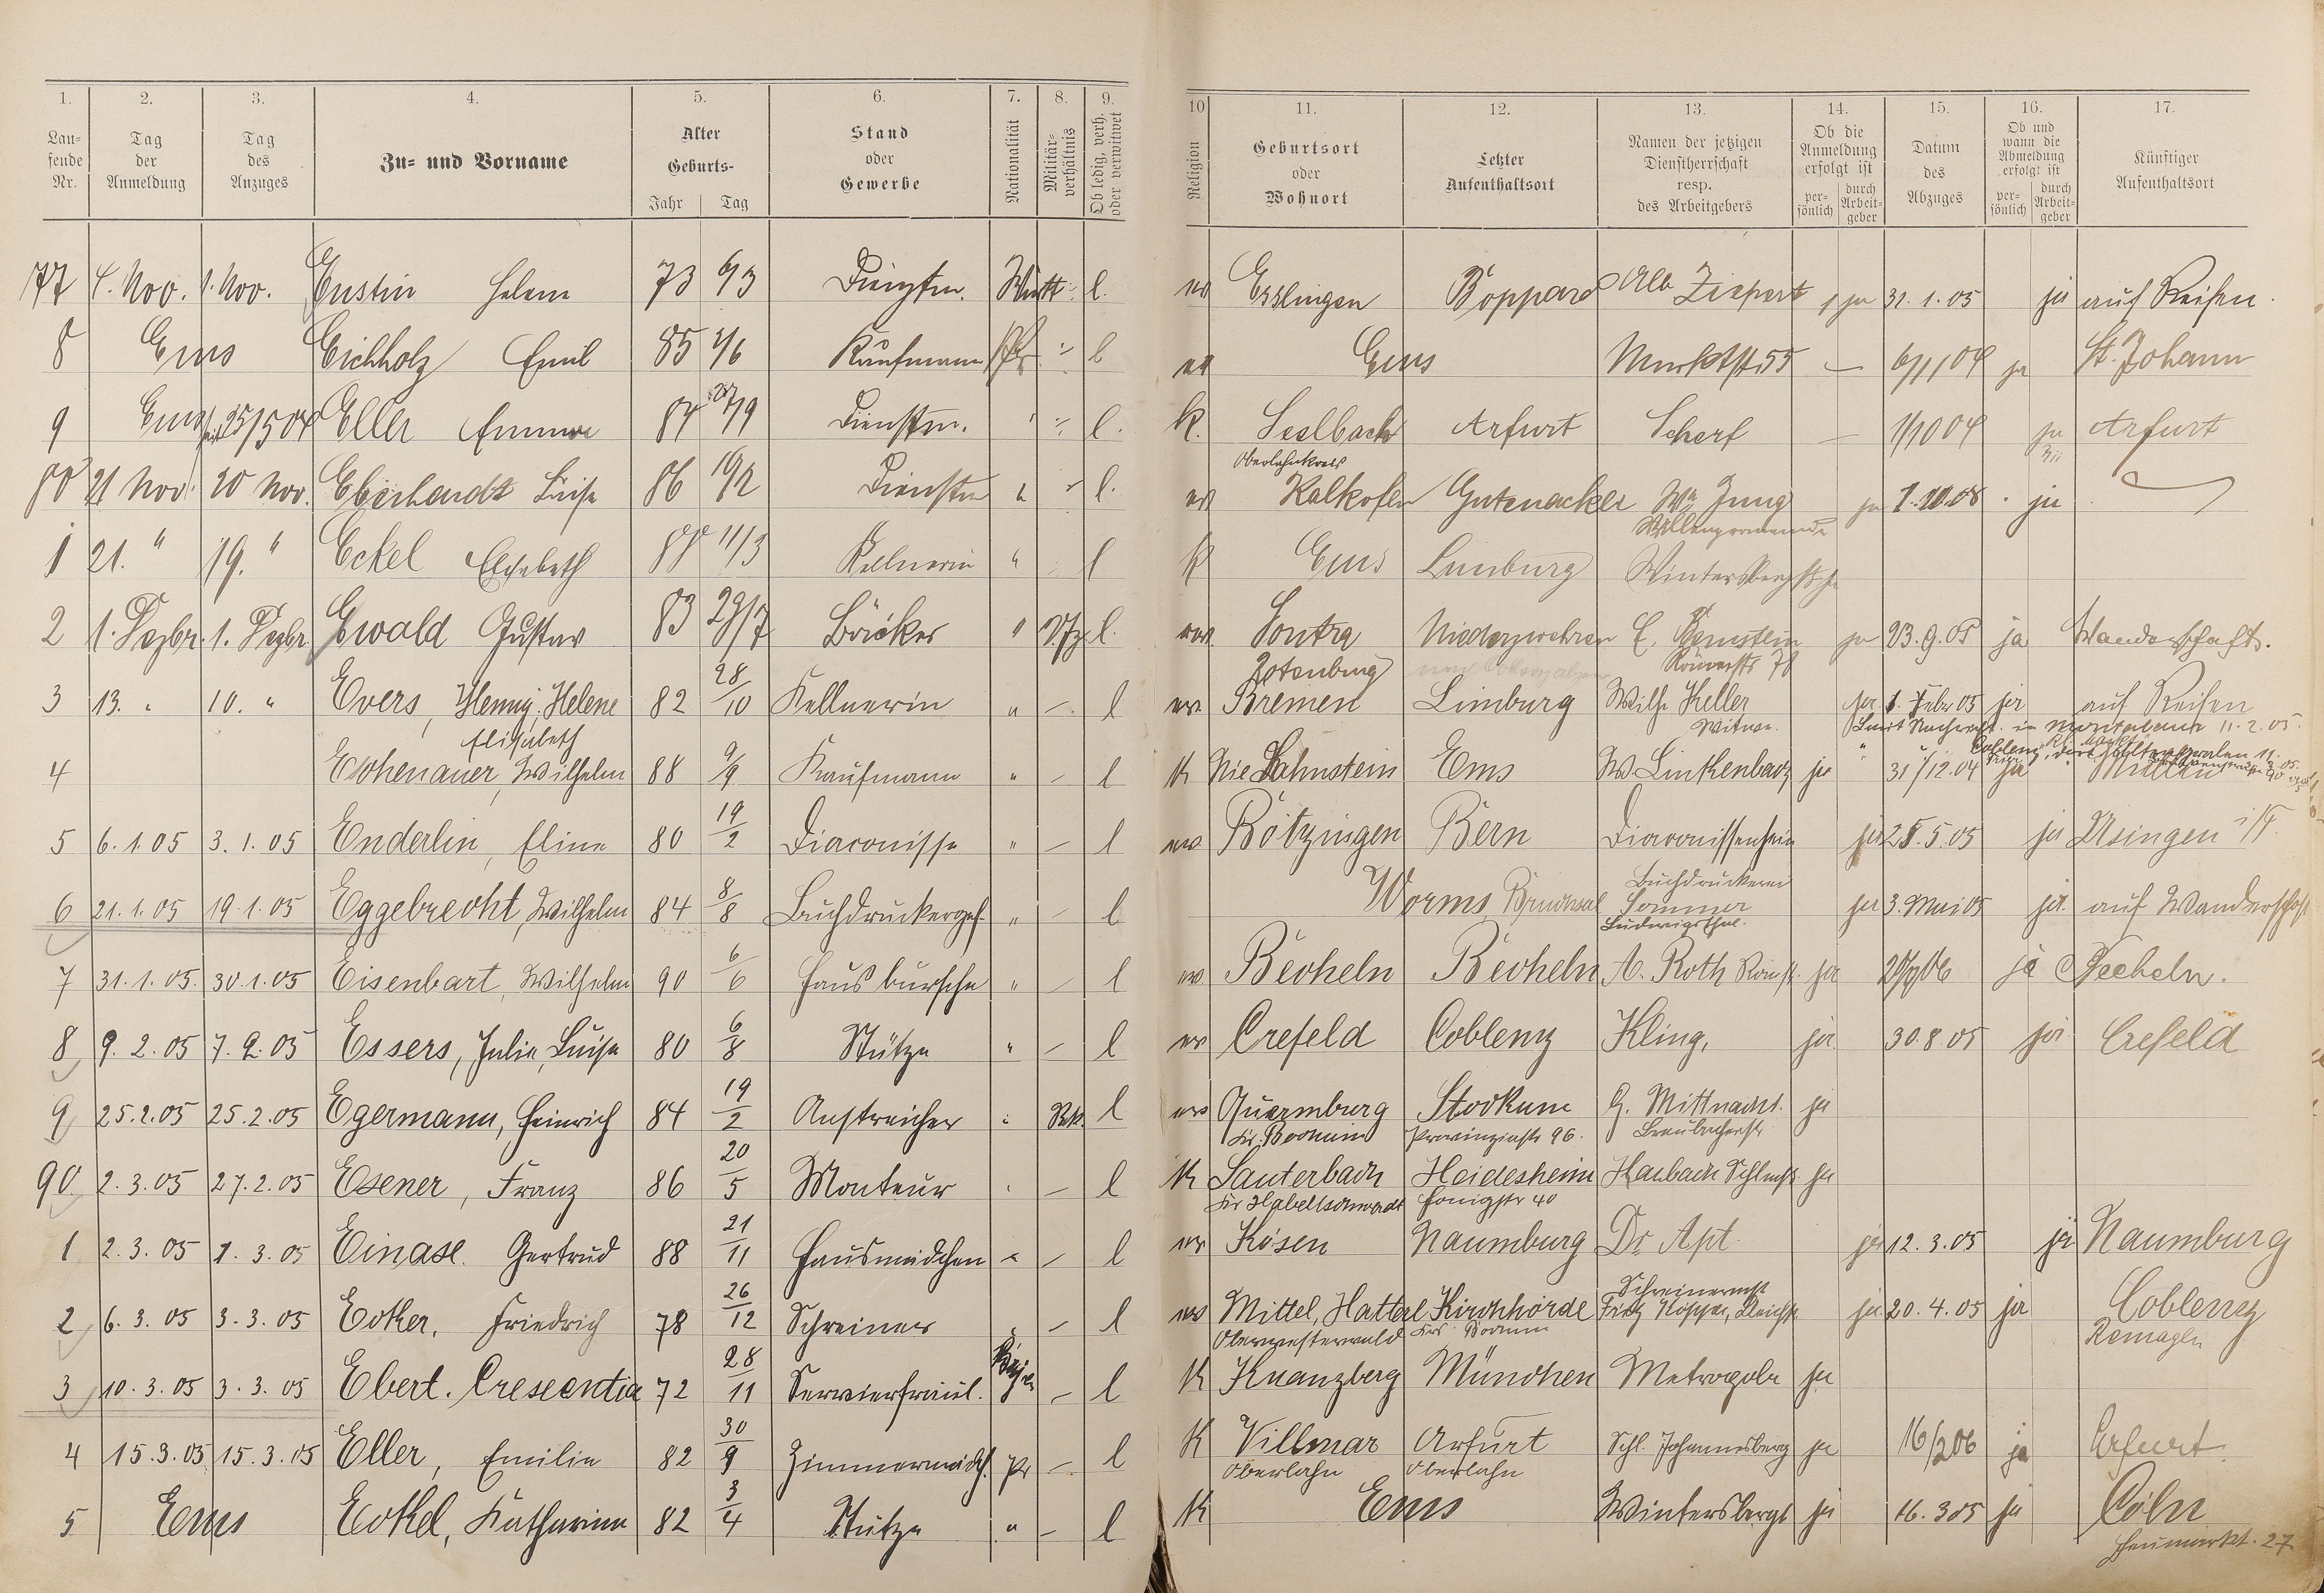 1. 2. 3. 4. 5. 6. 7. 8. 9. 10 11. 12. 13. 14. 15. 16. 17.
Lau-
fende
Nr.
Tag
der
Anmeldung
Tag
des
Anzuges
Zu- und Vorname
Alter
Geburts-
Jahr Tag
Stand
oder
Gewerbe
Nationalität
Militär-
verhältnis
Ob ledig, verh.
oder verwitwet
Religion
Geburtsort
oder
Wohnort
Letzter
Aufenthaltsort
Namen der jetzigen
Dienstherrschaft
resp.
des Arbeitgebers
Ob die
Anmeldung
erfolgt ist
per-
sönlich
durch
Arbeit-
geber
Datum
des
Abzuges
Ob und
wann die
Abmeldung
erfolgt ist
per-
sönlich
durch
Arbeit-
geber
Künftiger
Aufenthaltsort
77 1. Nov. Enstin Helene 73 6/3 Württ. l. ev Esslingen Boppard Alb. ja 31.1.05 ja auf Reisen.
8 Ems Eichholz Emil 85 Kaufmann Pr. l ev Ems Marktstr. 55 — 6/1 04 ja St. Johann
9 Ems 25/5 04 Eller Emma 84 Dienstm. l. k. Seelbach Arfurt Scherf — 1/10 04 ja Arfurt
Oberlahnkreis
80 21 Nov. 20 Nov. Eberhardt Luise 86 19/2 Dienstm l. ev Kalkofen Gutenacker Wm Jung ja 1.10.08. ja
1 21. " 19. " Eckel Elisabeth 88 11/3 Kellnerin " l k Ems Limburg
2 1. Dezbr. 1. Dezbr. Ewald Gustav 83 29/7 Bäcker " l. ev. Sontra Niederzwehren E. Bernstein ja 23.9.05 ja Wanderschaft.
Rotenburg Römerstr 78
3 13. " 10. " Evers, Henny, Helene 82 28/10 Kellnerin " — l ev. Bremen Limburg Wilh. Keller ja 1. Febr 05 ja auf Reisen
Elisabeth Witwe.
4 Eschenauer, Wilhelm 88 9/9 Kaufmann " — l K Nie Lahnstein Ems W. Linkenbach ja 31/12.04 ja
5 6.1.05 3.1.05 Enderlin, Eline 80 19/2 Diaconisse " — l ev. Bötzingen Bern Diaconissenheim ja 25.5.05 ja Usingen i/T.
Buchdruckerei
6 21.1.05 19.1.05 Eggebrecht, Wilhelm 84 8/8 Buchdruckergeh. " — l Worms Bruchsal Sommer ja 3. Mai 05 ja. auf Wanderschaft
7 31.1.05. 30.1.05 Eisenbart, Wilhelm 90 6/6 Hausbursche " — l ev Becheln Becheln A. Roth Römstr. ja ja Becheln.
8 9.2.05 7.2.05 Essers, Julie, Luise 80 6/8 Stütze " — l ev Crefeld Coblenz Kling, ja 30.8.05 ja Crefeld
9 25.2.05 25.2.05 Egermann, Heinrich 84 19/2 Anstreicher l ev Querenburg Stockum G. Mittnacht. ja
Kr. Bochum Provinzialstr 96. Braubacherstr
90 2.3.05 27.2.05 Esener, Franz 86 20/5 Monteur — l K Lauterbach Heidesheim ja
Kr Habelschwerdt Honigstr 40
1 2.3.05 1.3.05 Einase. Gertrud 88 21/11 Hausmädchen " — l ev Kösen Naumburg Dr Apt. ja 12.3.05 ja Naumburg
Schreinermst
2 6.3.05 3.3.05 Ecker, Friedrich 78 26/12 Schreiner — l ev Mittel, Hattert Kirchhörde Fritz ja 20.4.05 ja Coblenz
Oberwesterwald Krs Bochum Remagen
3 10.3.05 3.3.05 Ebert. Crescentia 72 28/11 Servierfräul. — l K Kranzberg München Metropole ja
4 15.3.05 15.3.05 Eller, Emilie 82 30/9 Zimmermädch. Pr — l K Villmar Arfurt Schl. Johannesberg ja 16/2 06 ja Arfurt
Oberlahn Oberlahn
5 Ems Eckel, Katharina 82 3/4 Stütze " — l K Ems Wintersbergs ja 16.3.05 ja Cöln
Heumarkt. 27